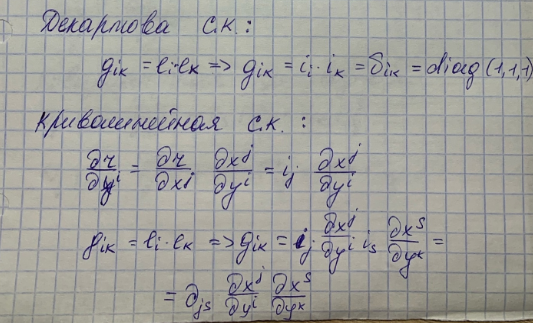 Декартова с.к.:
gᵢₖ = eᵢ·eₖ => gᵢₖ = iᵢ · iₖ = δᵢₖ = diag(1,1,1)
Криволинейная с.к. :
∂r/∂yⁱ = ∂r/∂xʲ ∂xʲ/∂yⁱ = iⱼ ∂xʲ/∂yⁱ
gᵢₖ = eᵢ·eₖ => gᵢₖ = iⱼ ∂xʲ/∂yⁱ iₛ ∂xˢ/∂yᵏ =
= ∂ⱼₛ ∂xʲ/∂yⁱ ∂xˢ/∂yᵏ